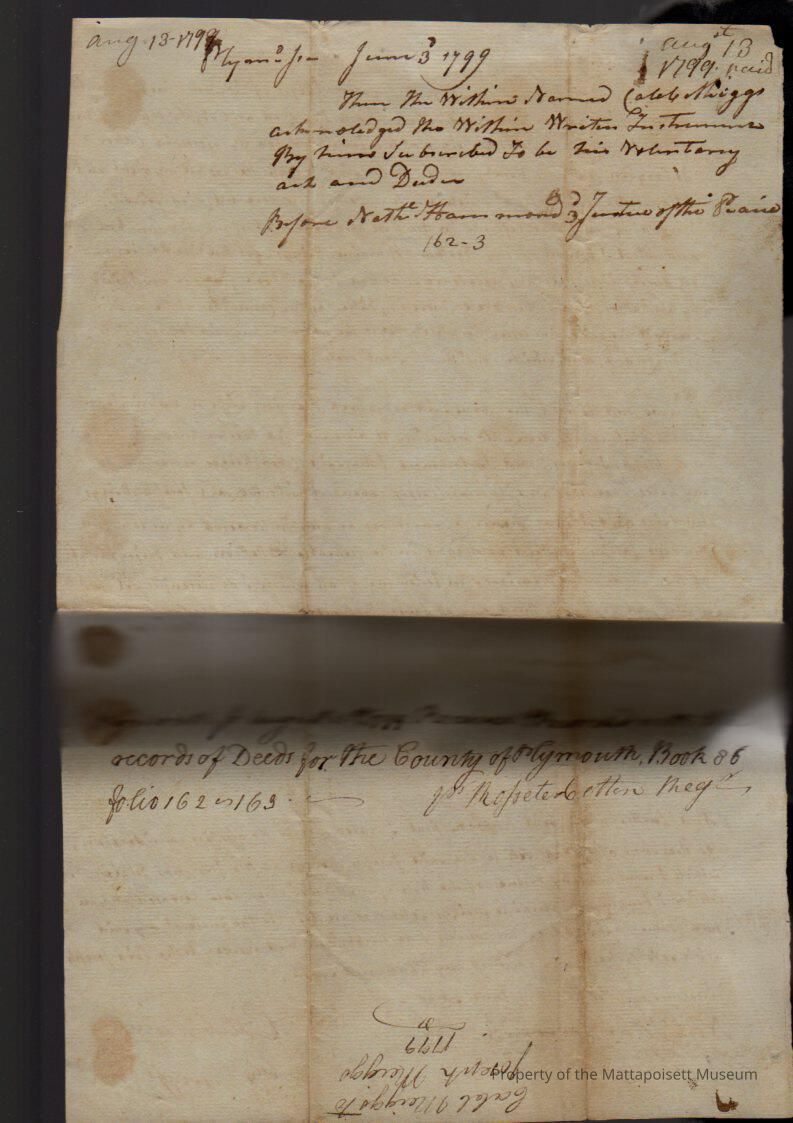 aug 13-1799
Plymo ss June 3d 1799
augst 13
1799 paid
then the Within Named Caleb Meiggs
acknoledged the Within Writen Instrument
By him Subscribed To be his Voluntary
act and Deede
Before Nathl Hammond Justice of the Peace
162-3
records of Deeds for the County of Plymouth, Book 86
folio 162 & 163.
pr Rosseter Cotton Regr
Caleb Meiggs to
Joseph Meiggs
1799
Property of the Mattapoisett Museum